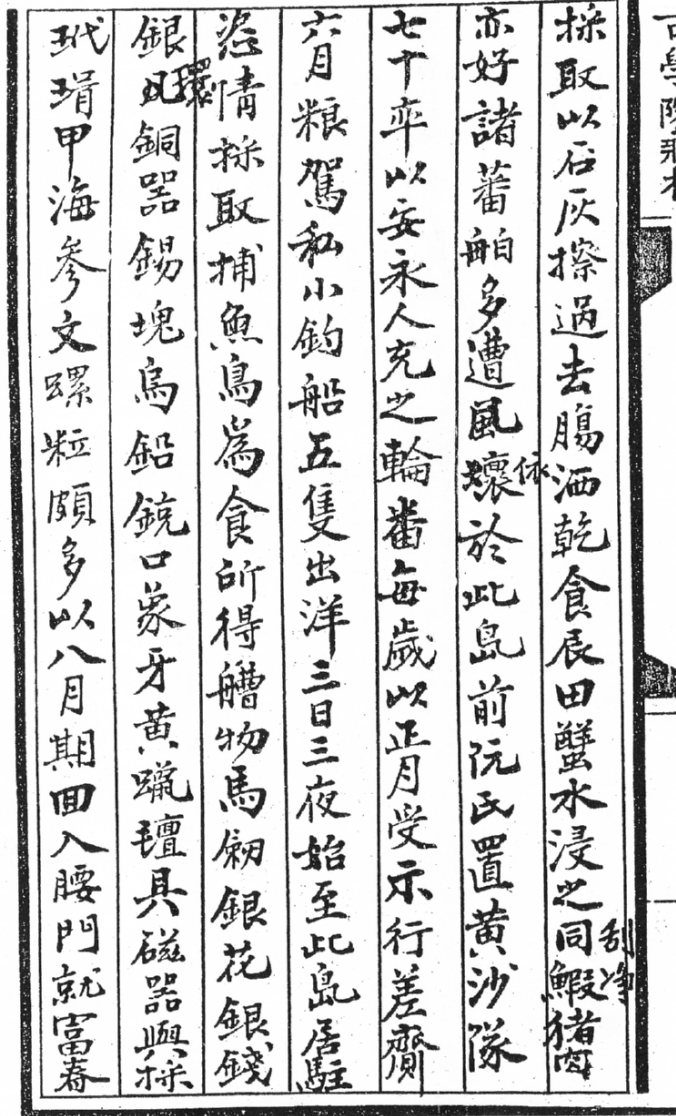 古學院
採取以石灰擦過去腸洒乾食辰田蟹水浸之刮净同鰕猪肉
亦好諸蕃舶多遭風壞依於此島前阮氏置黃沙隊
七十率以安永人充之輪番每歲以正月受示行差齎
六月粮駕私小釣船五隻出洋三日三夜始至此島居駐
恣情採取捕魚鳥為食所得艚物馬劒銀花銀錢
銀环銅器錫塊烏鉛銃口象牙黃蠟氊具磁器與採
玳瑁甲海參文螺粒頗多以八月期回入腰門就富春